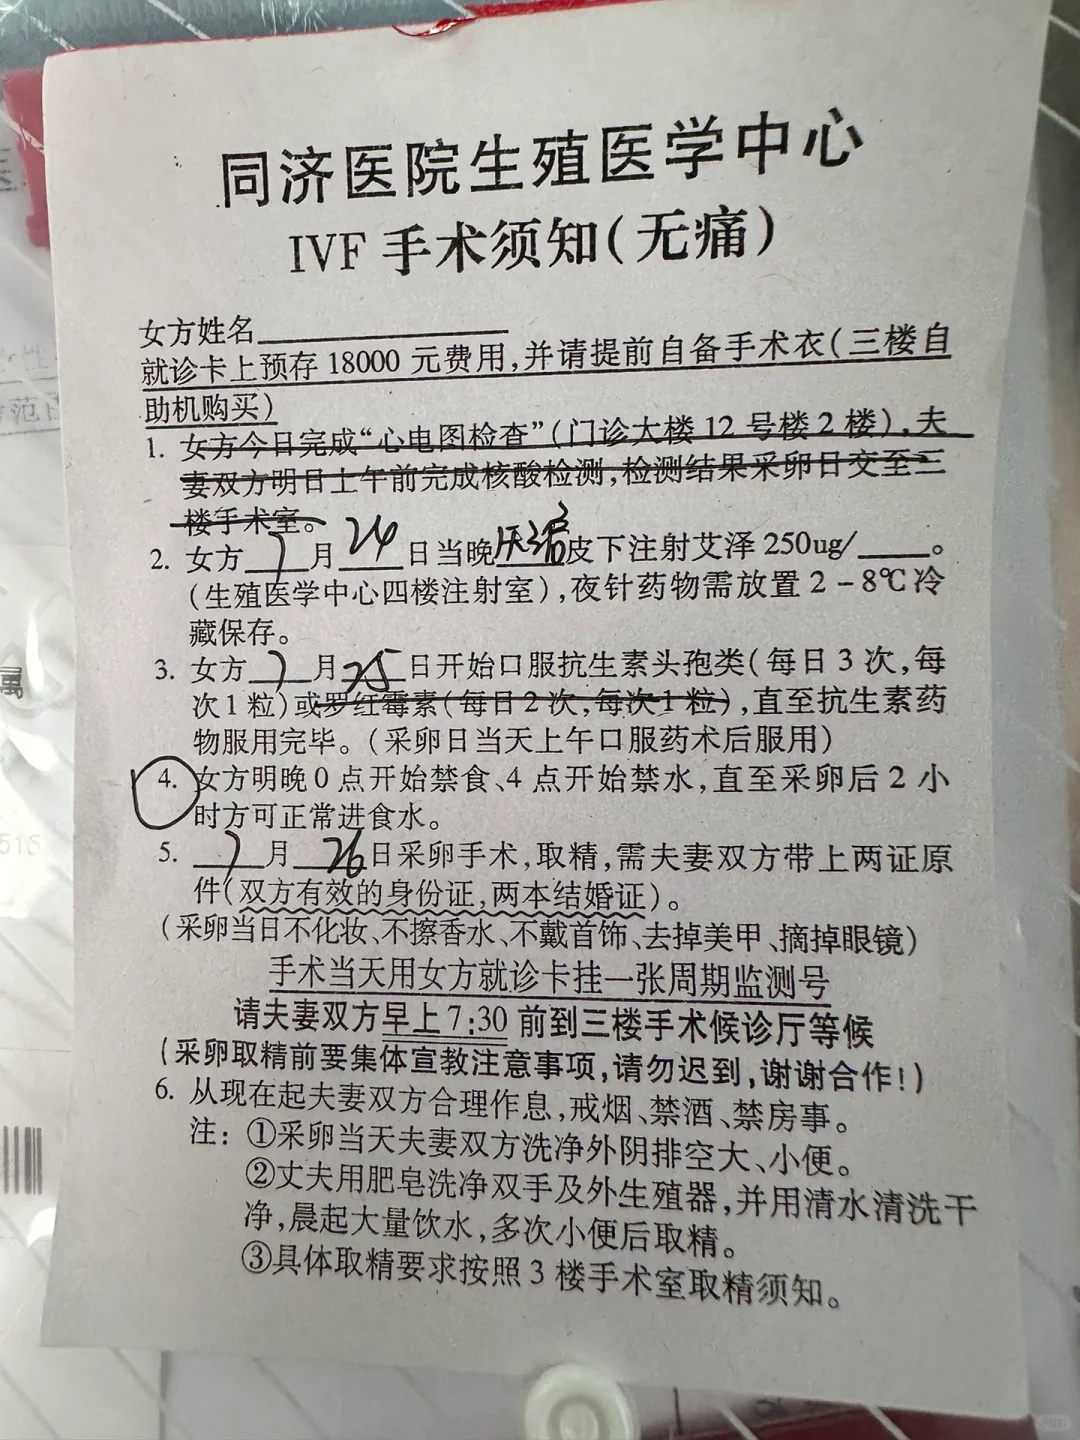 同济医院生殖医学中心
IVF 手术须知(无痛)
女方姓名
就诊卡上预存 18000 元费用,并请提前自备手术衣(三楼自
助机购买)
1. 女方今日完成“心电图检查”(门诊大楼 12 号楼 2 楼),夫
妻双方明日上午前完成核酸检测,检测结果采卵日交至三
楼手术室。
2. 女方 7 月 24 日当晚 皮下注射艾泽 250ug/____。
(生殖医学中心四楼注射室),夜针药物需放置 2－8℃冷
藏保存。
3. 女方 7 月 25 日开始口服抗生素头孢类(每日 3 次,每
次 1 粒)或罗红霉素(每日 2 次,每次 1 粒),直至抗生素药
物服用完毕。(采卵日当天上午口服药术后服用)
4. 女方明晚 0 点开始禁食、4 点开始禁水,直至采卵后 2 小
时方可正常进食水。
5. 7 月 26 日采卵手术,取精,需夫妻双方带上两证原
件(双方有效的身份证,两本结婚证)。
(采卵当日不化妆、不擦香水、不戴首饰、去掉美甲、摘掉眼镜)
手术当天用女方就诊卡挂一张周期监测号
请夫妻双方早上 7:30 前到三楼手术候诊厅等候
(采卵取精前要集体宣教注意事项,请勿迟到,谢谢合作!)
6. 从现在起夫妻双方合理作息,戒烟、禁酒、禁房事。
注: ①采卵当天夫妻双方洗净外阴排空大、小便。
②丈夫用肥皂洗净双手及外生殖器,并用清水清洗干
净,晨起大量饮水,多次小便后取精。
③具体取精要求按照 3 楼手术室取精须知。